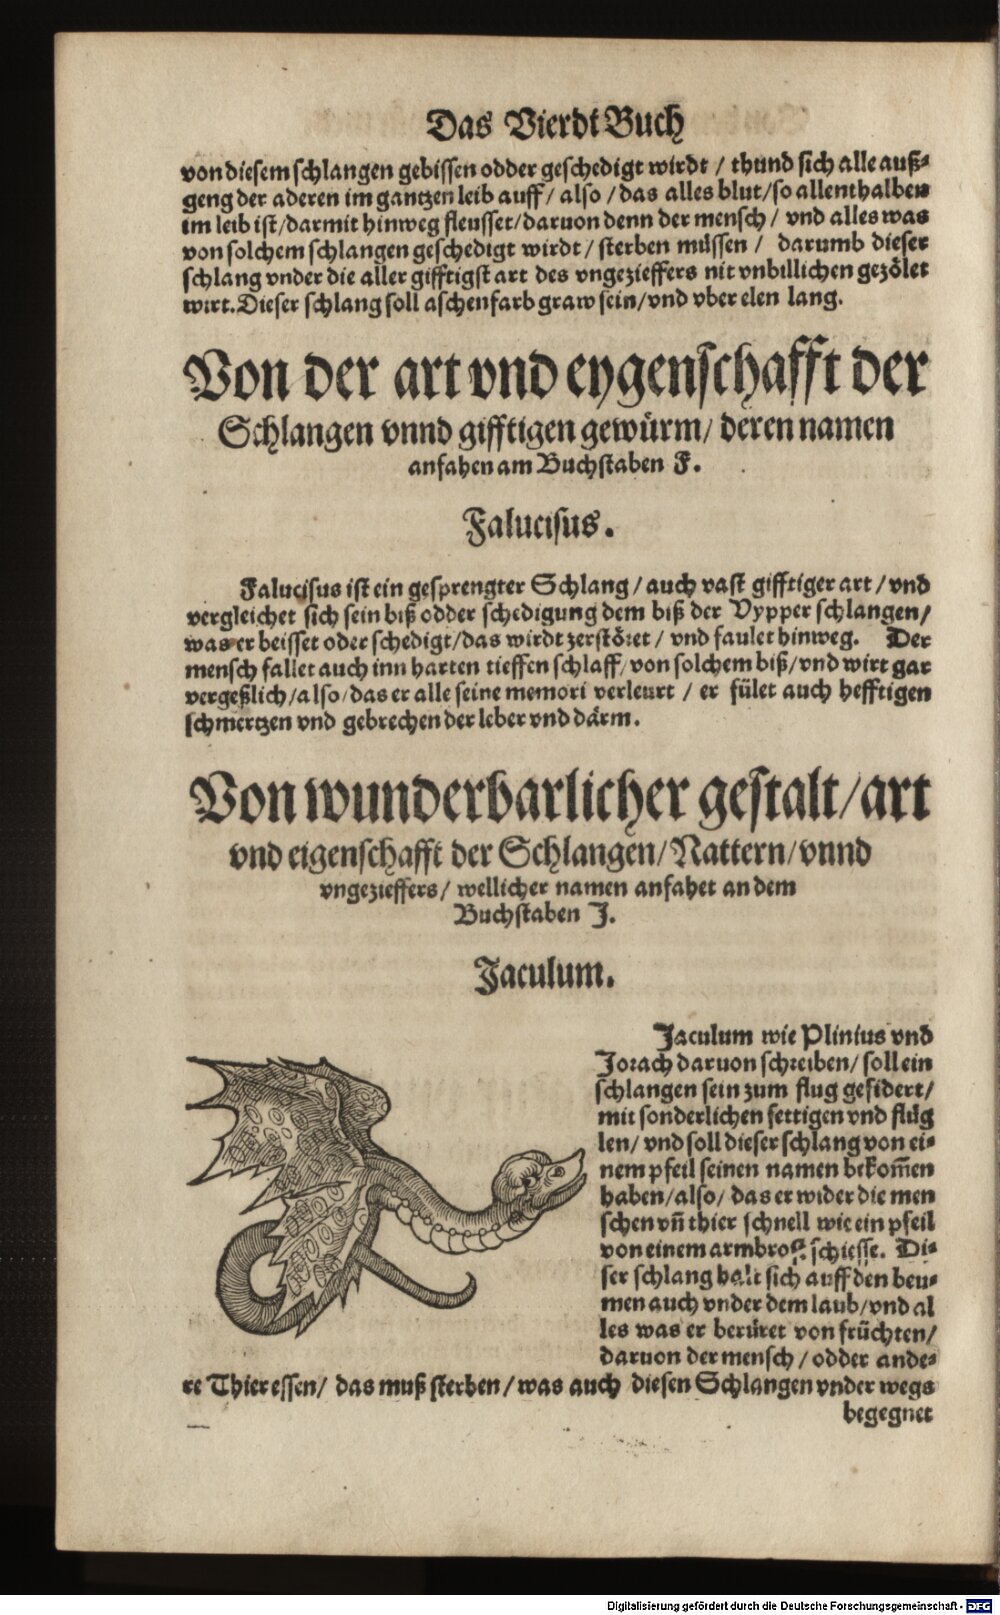 Das Vierdt Buch
von diesem schlangen gebissen odder geschedigt wirdt / thund sich alle auß⸗
geng der aderen im gantzen leib auff / also / das alles blut / so allenthalben
im leib ist / darmit hinweg fleusset / daruon denn der mensch / vnd alles was
von solchem schlangen geschedigt wirdt / sterben müssen / darumb dieser
schlang vnder die aller gifftigst art des vngezieffers nit vnbillichen gezölet
wirt. Dieser schlang soll aschenfarb graw sein / vnd vber elen lang.
Von der art vnd eygenschafft der
Schlangen vnnd gifftigen gewürm / deren namen
anfahen am Buchstaben F.
Falucisus.
Falucisus ist ein gesprengter Schlang / auch vast gifftiger art / vnd
vergleichet sich sein biß odder schedigung dem biß der Vypper schlangen /
was er beisset oder schedigt / das wirdt zerstöret / vnd faulet hinweg. Der
mensch fallet auch inn harten tieffen schlaff / von solchem biß / vnd wirt gar
vergeßlich / also / das er alle seine memori verleurt / er fület auch hefftigen
schmertzen vnd gebrechen der leber vnd därm.
Von wunderbarlicher gestalt / art
vnd eigenschafft der Schlangen / Nattern / vnnd
vngezieffers / wellicher namen anfahet an dem
Buchstaben J.
Jaculum.
Jaculum wie Plinius vnd
Jorach daruon schreiben / soll ein
schlangen sein zum flug gefidert /
mit sonderlichen fettigen vnd flüg
len / vnd soll dieser schlang von ei⸗
nem pfeil seinen namen bekom̄en
haben / also / das er wider die men
schen vn̄ thier schnell wie ein pfeil
von einem armbrost schiesse. Di⸗
ser schlang halt sich auff den beu⸗
men auch vnder dem laub / vnd al
les was er berüret von früchten /
daruon der mensch / odder ande⸗
re Thier essen / das muß sterben / was auch diesen Schlangen vnder wegs
begegnet
Digitalisierung gefördert durch die Deutsche Forschungsgemeinschaft - DFG